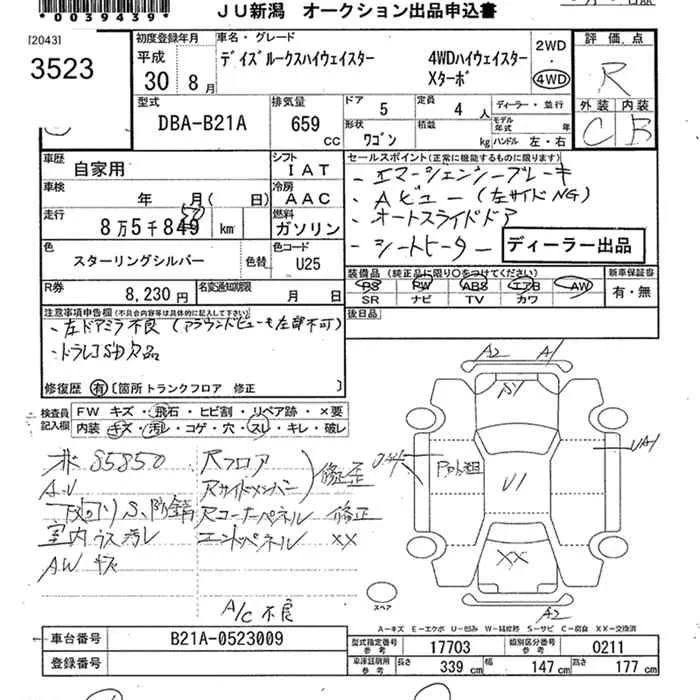 0039439
JU新潟 オークション出品申込書
[2043]
3523
初度登録年月
平成
30 8 月
車名・グレード
デイズルークスハイウェイスター 4WDハイウェイスター
Xターボ
2WD
4WD
評価点
R
外装 内装
C B
型式
DBA-B21A
排気量
659 cc
ドア 5
定員 4 人
形状 ワゴン
積載 kg
ディーラー・並行
モデル年式 年
ハンドル 左・右
車歴 自家用
シフト IAT
車検 年 月( 日)
冷房 AAC
走行 8万5千849 km
50
燃料 ガソリン
色 スターリングシルバー 色替
色コード U25
R券 8,230円
名変通知期限 月 日
セールスポイント(正常に機能するものに限ります)
・エマージェンシーブレーキ
・Aビュー(左サイドNG)
・オートスライドドア
・シートヒーター
ディーラー出品
装備品(純正品に限り○をつけてください)
PS PW ABS エアB AW
SR ナビ TV カワ
新車保証書
有・無
後日品
注意事項申告欄(不具合内容等は具体的に記入して下さい)
・左ドアミラ不良(アラウンドビューも左部不可)
・ドラレコSD欠品
修復歴 有 [箇所 トランクフロア 修正 ]
検査員記入欄
FW キズ・飛石・ヒビ割・リペア跡・×要
内装 キズ・汚レ・コゲ・穴・スレ・キレ・破レ
85850
下回りS、防錆
室内ウス汚レ
AWキズ
Rフロア
Rサイドメンバー
修正歪
Rコーナーパネル 修正
エンドパネル XX
A/C不良
A2 A1
A1
UA1
U1
XX
A2
スペア
A-キズ E-エクボ U-凹み W-補修跡 S-サビ C-腐食 XX-交換済
車台番号 B21A-0523009
登録番号
型式指定番号 参考 17703
類別区分番号 参考 0211
車庫証明用 参考 長さ 339 cm 幅 147 cm 高さ 177 cm